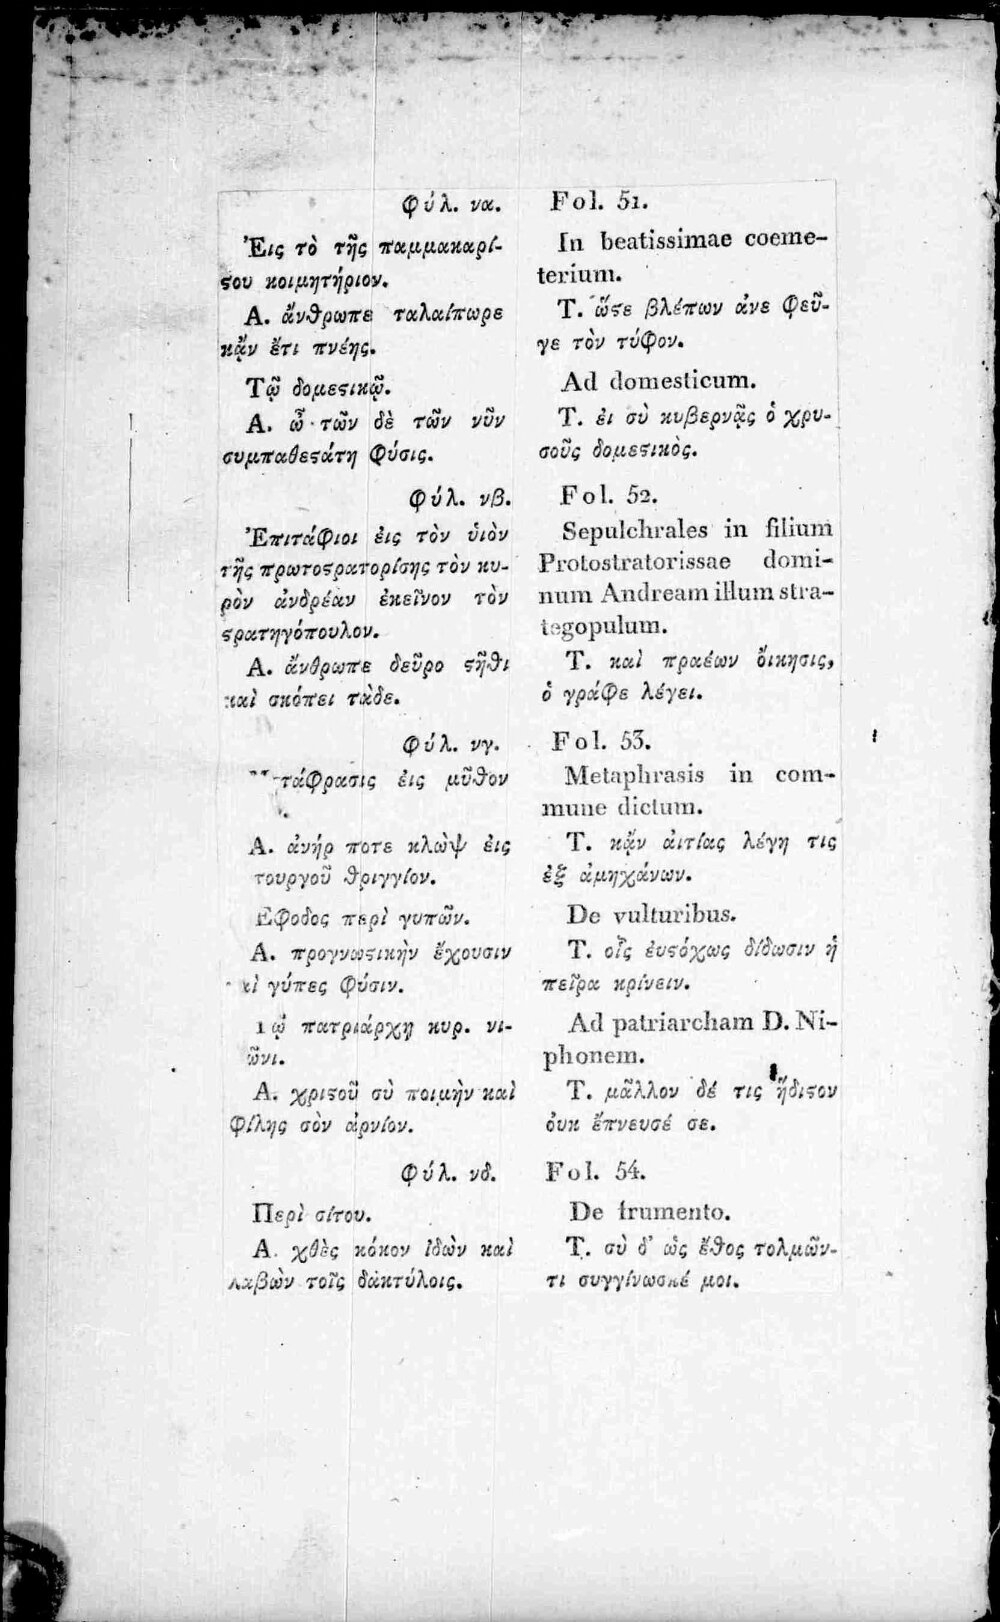 Φύλ. να.
Ἐις τὸ τῆς παμμακαρί-
ϛου κοιμητήριον.
Α. ἄνθρωπε ταλαίπωρε
κᾂν ἔτι πνέῃς.
Τῷ δομεϛικῷ.
Α. ὦ τῶν δὲ τῶν νῦν
συμπαθεϛάτη φύσις.
Φύλ. νβ.
Ἐπιτάφιοι ἐις τὸν ὑιὸν
τῆς πρωτοϛρατορίσης τὸν κυ-
ρὸν ἀνδρέαν ἐκεῖνον τὸν
ϛρατηγόπουλον.
Α. ἄνθρωπε δεῦρο ϛῆθι
καὶ σκόπει τὰδε.
Φύλ. νγ.
τάφρασις ἐις μῦθον
Α. ἀνήρ ποτε κλὼψ ἐις
τουργοῦ θριγγίον.
Εφοδος περὶ γυπῶν.
Α. προγνωϛικὴν ἔχουσιν
γύπες φύσιν.
Τῷ πατριάρχῃ κυρ. νι-
ῶνι.
Α. χριϛοῦ σὺ ποιμὴν καὶ
φίλης σὸν ἀρνίον.
Φύλ. νδ.
Περὶ σίτου.
Α. χθὲς κόκον ἰδὼν καὶ
λαβὼν τοῖς δακτύλοις.
Fol. 51.
In beatissimae coeme-
terium.
Τ. ὥϛε βλέπων ἀνε φεῦ-
γε τὸν τύφον.
Ad domesticum.
Τ. ἐι σὺ κυβερνᾷς ὁ χρυ-
σοῦς δομεϛικὸς.
Fol. 52.
Sepulchrales in filium
Protostratorissae domi-
num Andream illum stra-
tegopulum.
Τ. καὶ πραέων ὄικησις,
ὁ γράφε λέγει.
Fol. 53.
Metaphrasis in com-
mune dictum.
Τ. κᾂν ἀιτίας λέγῃ τις
ἐξ ἀμηχάνων.
De vulturibus.
Τ. οἷς ἐυϛόχως δίδωσιν ἡ
πεῖρα κρίνειν.
Ad patriarcham D. Ni-
phonem.
Τ. μᾶλλον δέ τις ἥδιϛον
ὀυκ ἔπνευσέ σε.
Fol. 54.
De frumento.
Τ. σὺ δ' ὡς ἔθος τολμῶν-
τι συγγίνωσκέ μοι.